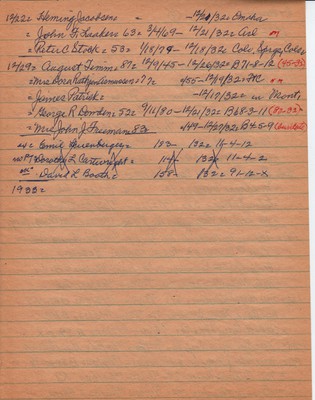 12/22= Heming Jacobsens = -12/20/32= Omaha
= John F. Lankers 63= 3/4/69- 12/21/32= Asl
= Peter C. Stoek= 53= 1/18/79- 12/18/32= Colo. Sprgs, Colo=
12/29= August Timm= 87= 12/9/45-12/26/32= B71-8-12 (45-33)
= Mrs. Dora Rattgen Asmussen= 77= 455-12/29/32=
= James Patrick= -12/17/32= in Mont.
= George R. Bowden= 52= 9/11/80-12/21/32= B68-3-11 (82-33)
= Mrs. John J. Freeman 83= 449-12/27/32= B45-9
Emil 132= 11-4-12
Dorothy L. Cartwright= 114- 132= 11-4-2
David L. Booth= 158- 132= 91-12-X
1933=